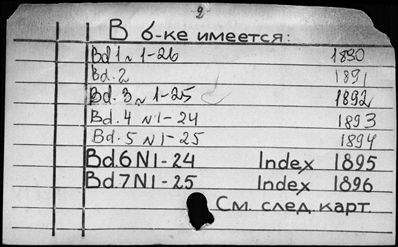 2
В б-ке имеется:
Bd 1 N 1-26 1890
Bd. 2 1891
Bd. 3 N 1-25 1892
Bd. 4 N 1-24 1893
Bd. 5 N 1-25 1894
Bd. 6 N 1-24 Index 1895
Bd. 7 N 1-25 Index 1896
См. след. карт.